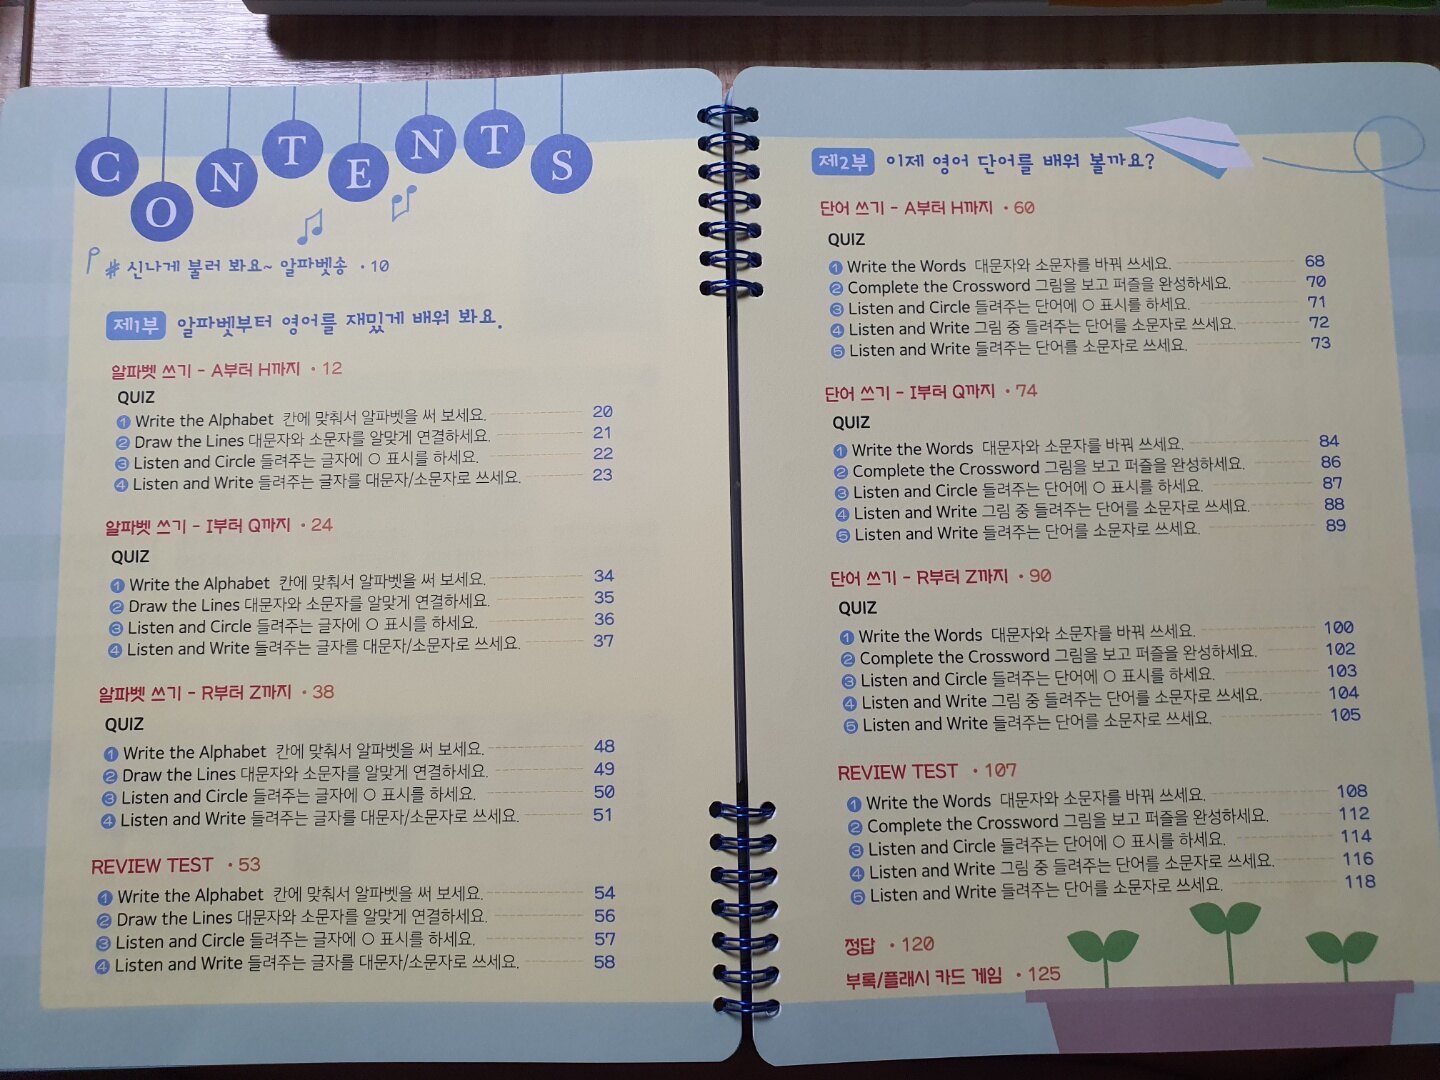 CONTENTS
# 신나게 불러 봐요~ 알파벳송 • 10
제1부 알파벳부터 영어를 재밌게 배워 봐요.
알파벳 쓰기 - A부터 H까지 • 12
QUIZ
1 Write the Alphabet 칸에 맞춰서 알파벳을 써 보세요. 20
2 Draw the Lines 대문자와 소문자를 알맞게 연결하세요. 21
3 Listen and Circle 들려주는 글자에 ○ 표시를 하세요. 22
4 Listen and Write 들려주는 글자를 대문자/소문자로 쓰세요. 23
알파벳 쓰기 - I부터 Q까지 • 24
QUIZ
1 Write the Alphabet 칸에 맞춰서 알파벳을 써 보세요. 34
2 Draw the Lines 대문자와 소문자를 알맞게 연결하세요. 35
3 Listen and Circle 들려주는 글자에 ○ 표시를 하세요. 36
4 Listen and Write 들려주는 글자를 대문자/소문자로 쓰세요. 37
알파벳 쓰기 - R부터 Z까지 • 38
QUIZ
1 Write the Alphabet 칸에 맞춰서 알파벳을 써 보세요. 48
2 Draw the Lines 대문자와 소문자를 알맞게 연결하세요. 49
3 Listen and Circle 들려주는 글자에 ○ 표시를 하세요. 50
4 Listen and Write 들려주는 글자를 대문자/소문자로 쓰세요. 51
REVIEW TEST • 53
1 Write the Alphabet 칸에 맞춰서 알파벳을 써 보세요. 54
2 Draw the Lines 대문자와 소문자를 알맞게 연결하세요. 56
3 Listen and Circle 들려주는 글자에 ○ 표시를 하세요. 57
4 Listen and Write 들려주는 글자를 대문자/소문자로 쓰세요. 58
제2부 이제 영어 단어를 배워 볼까요?
단어 쓰기 - A부터 H까지 • 60
QUIZ
1 Write the Words 대문자와 소문자를 바꿔 쓰세요. 68
2 Complete the Crossword 그림을 보고 퍼즐을 완성하세요. 70
3 Listen and Circle 들려주는 단어에 ○ 표시를 하세요. 71
4 Listen and Write 그림 중 들려주는 단어를 소문자로 쓰세요. 72
5 Listen and Write 들려주는 단어를 소문자로 쓰세요. 73
단어 쓰기 - I부터 Q까지 • 74
QUIZ
1 Write the Words 대문자와 소문자를 바꿔 쓰세요. 84
2 Complete the Crossword 그림을 보고 퍼즐을 완성하세요. 86
3 Listen and Circle 들려주는 단어에 ○ 표시를 하세요. 87
4 Listen and Write 그림 중 들려주는 단어를 소문자로 쓰세요. 88
5 Listen and Write 들려주는 단어를 소문자로 쓰세요. 89
단어 쓰기 - R부터 Z까지 • 90
QUIZ
1 Write the Words 대문자와 소문자를 바꿔 쓰세요. 100
2 Complete the Crossword 그림을 보고 퍼즐을 완성하세요. 102
3 Listen and Circle 들려주는 단어에 ○ 표시를 하세요. 103
4 Listen and Write 그림 중 들려주는 단어를 소문자로 쓰세요. 104
5 Listen and Write 들려주는 단어를 소문자로 쓰세요. 105
REVIEW TEST • 107
1 Write the Words 대문자와 소문자를 바꿔 쓰세요. 108
2 Complete the Crossword 그림을 보고 퍼즐을 완성하세요. 112
3 Listen and Circle 들려주는 단어에 ○ 표시를 하세요. 114
4 Listen and Write 그림 중 들려주는 단어를 소문자로 쓰세요. 116
5 Listen and Write 들려주는 단어를 소문자로 쓰세요. 118
정답 • 120
부록/플래시 카드 게임 • 125